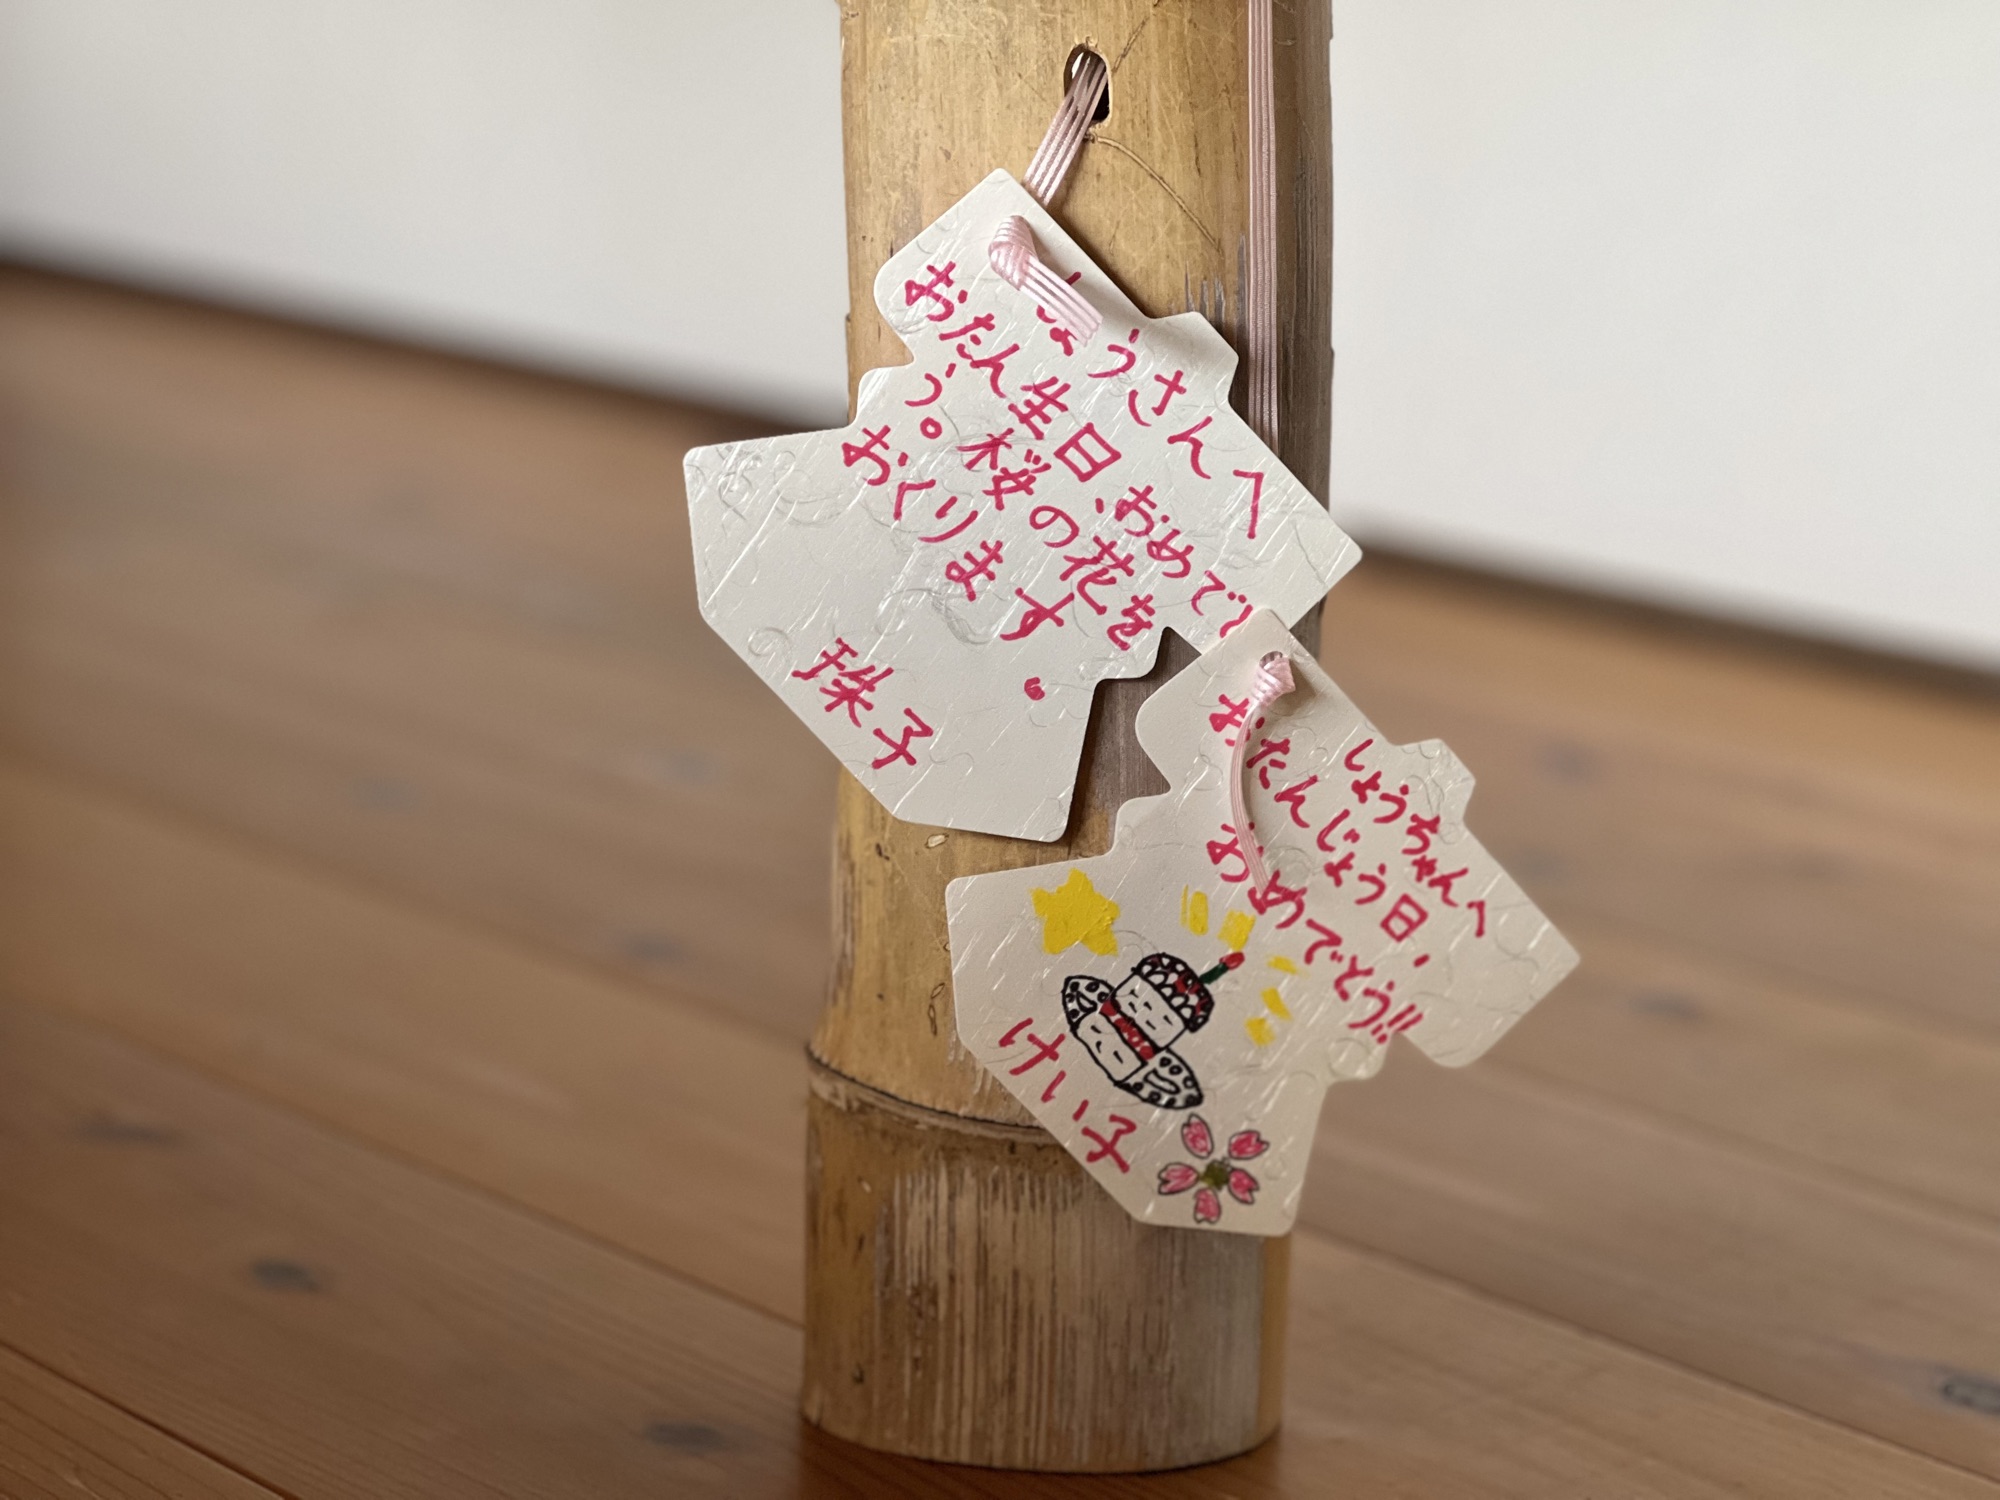 しょうさんへ
おたん生日、おめでと
う。桜の花を
おくります.
珠子
しょうちゃんへ
おたんじょう日.
おめでとう!!
けい子